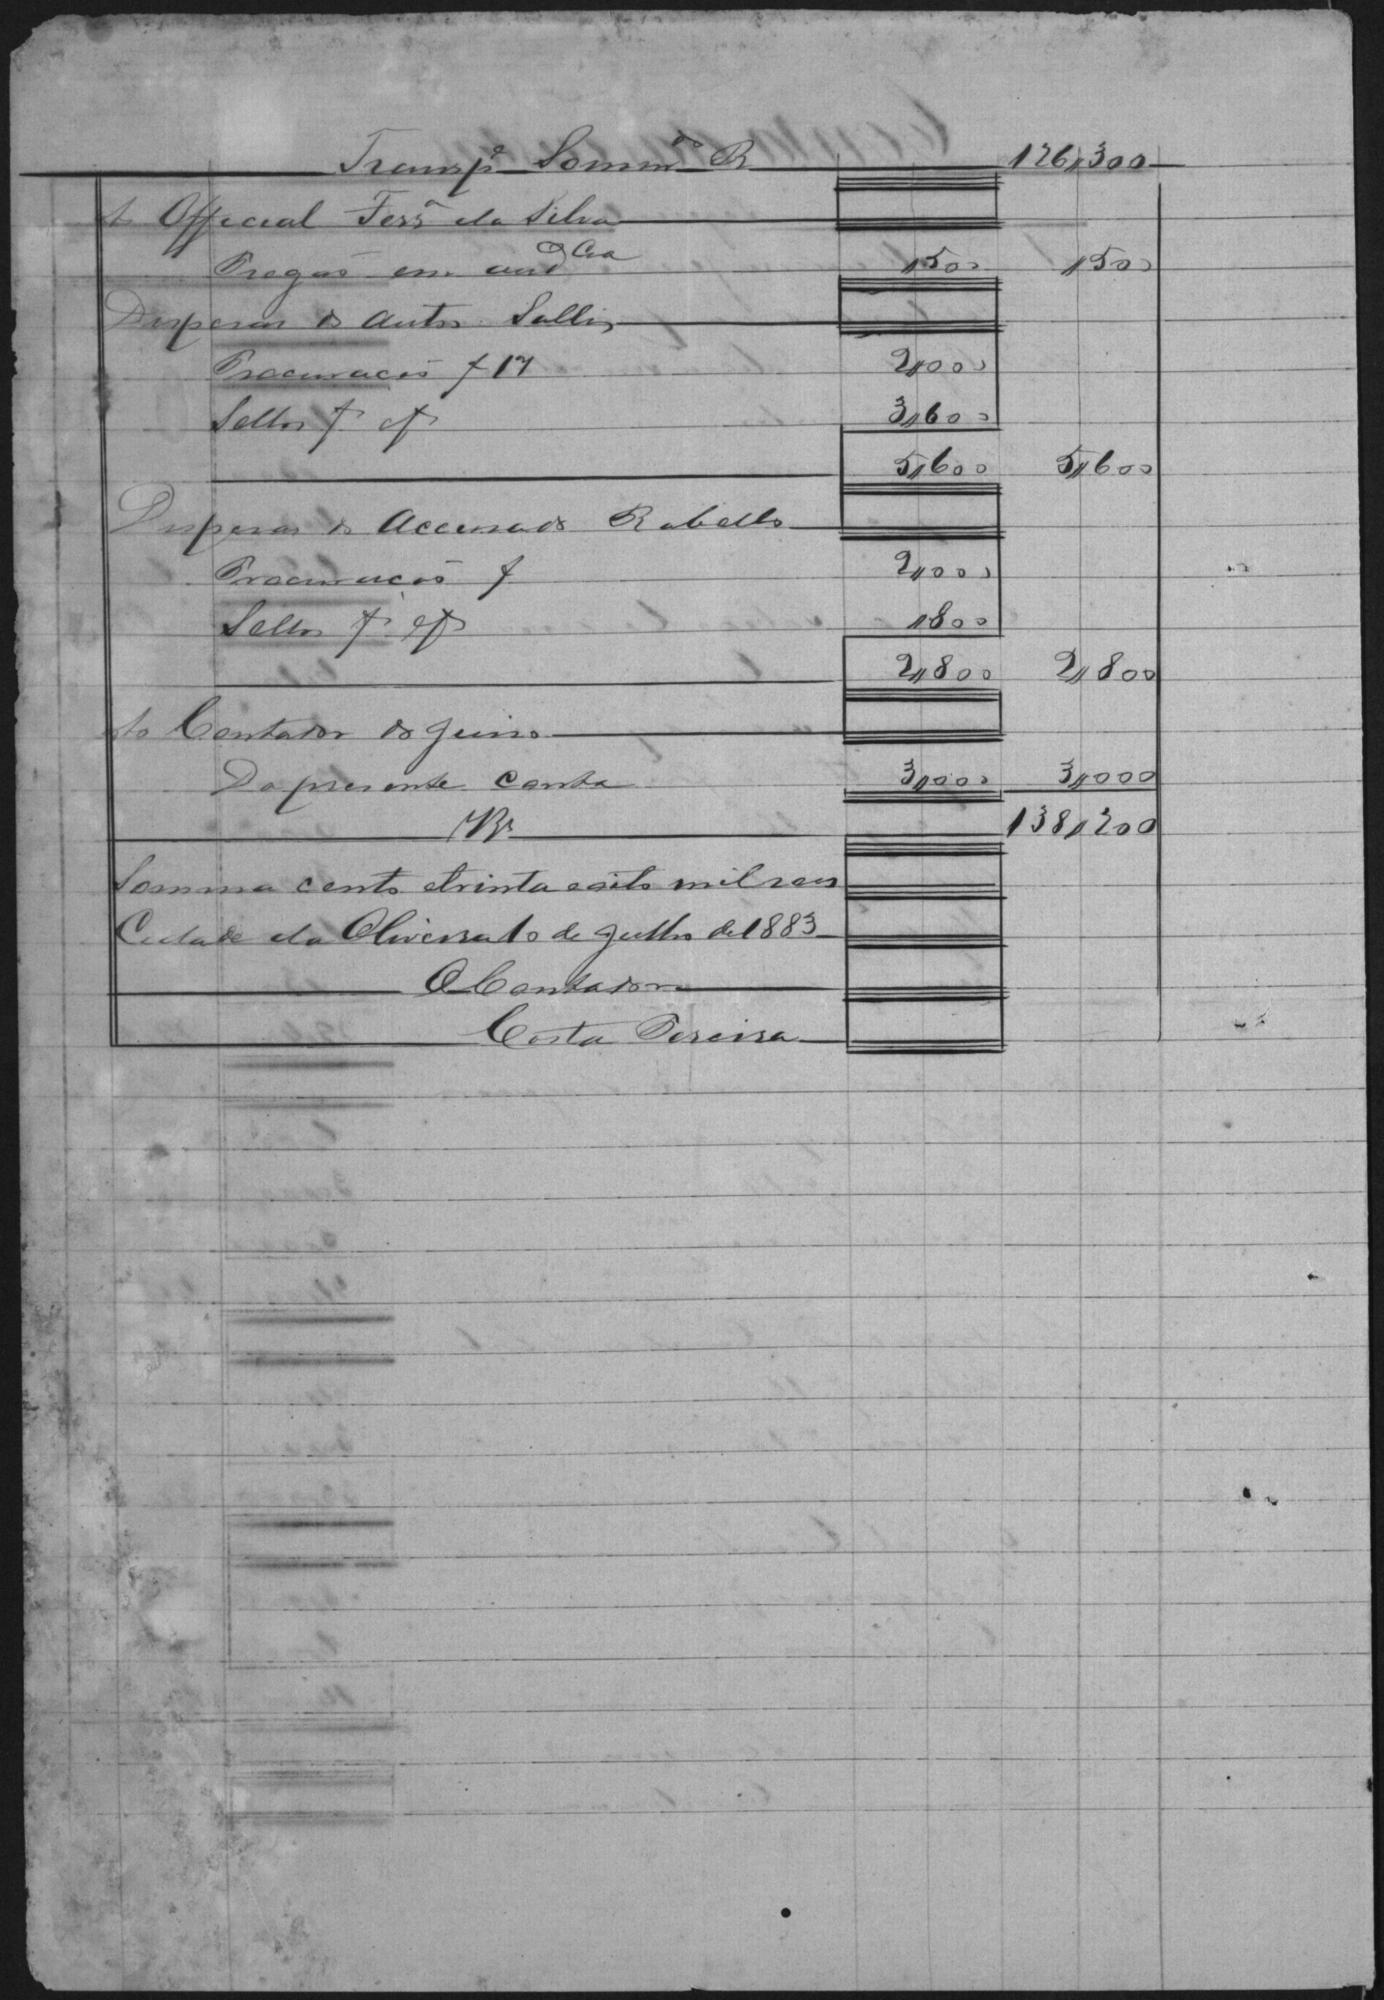 Transpe Sommdo R 126,300
Ao Official Ferrª da Silva
Pregão em audcia 1500 1500
Despesas do Autor Sallis
Procuração f 17 2,000
Sellos f ef 3,600
5,600 5,600
Despesas do Accusado Rabello
Procuração f 2,000
Sellos f ef 1800
2,800 2,800
Ao Contador do Juiso
Da presente Conta 3,000 3,000
Rs 138,200
Somma cento etrinta eoito mil reis
Cidade da Oliveira 10 de Julho de 1883
O Contador
Costa Pereira